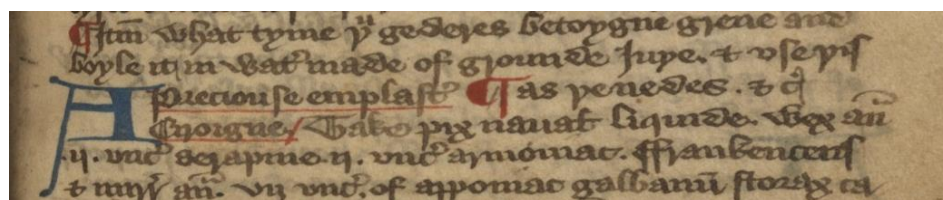 ¶ Itm̄ what tyme yu gederes betoygne grene and
boyle it in wat̉ made of grounde Iuye. & vse yis
A precious e emplast̉ ¶ as yenedes. & cͥ
Enoigne / Take pix naual̵ liquide. Wex an̄
.ij. vnc̉ serapine .ij. vnc̉ armoniac. ffrankencens
& mirr̉ an̄. vij vnc̉. of apponiac galbanū storax ca